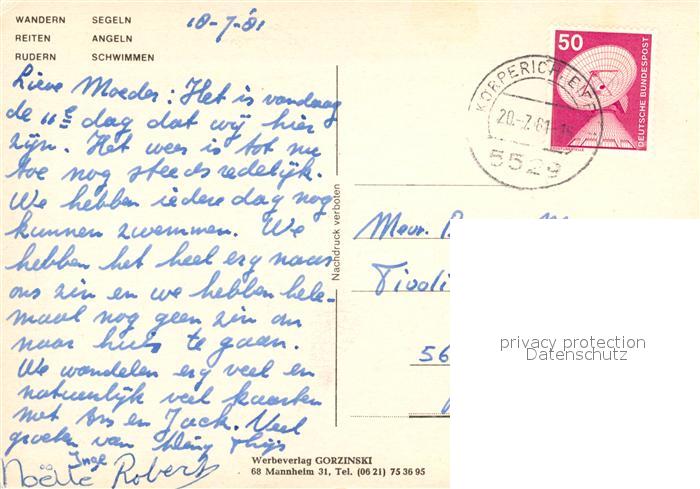 WANDERN SEGELN
REITEN ANGELN
RUDERN SCHWIMMEN
18-7-'81
Lieve Moeder: Het is vandaag
de 11e dag dat wij hier
zijn. Het weer is tot nu
toe nog steeds redelijk.
We hebben iedere dag nog
kunnen zwemmen. We
hebben het heel erg naar
ons zin en we hebben hele-
maal nog geen zin om
naar huis te gaan.
We wandelen erg veel en
natuurlijk veel kaarten
met Ans en Jack. Veel
groeten van
Inge
Noëlle Robert
Nachdruck verboten
Werbeverlag GORZINSKI
68 Mannheim 31, Tel. (06 21) 75 36 95
50
DEUTSCHE BUNDESPOST
KÖRPERICH, EIFEL
20.-7.81-15
5529
Mevr.
Tivoli
56
privacy protection
Datenschutz